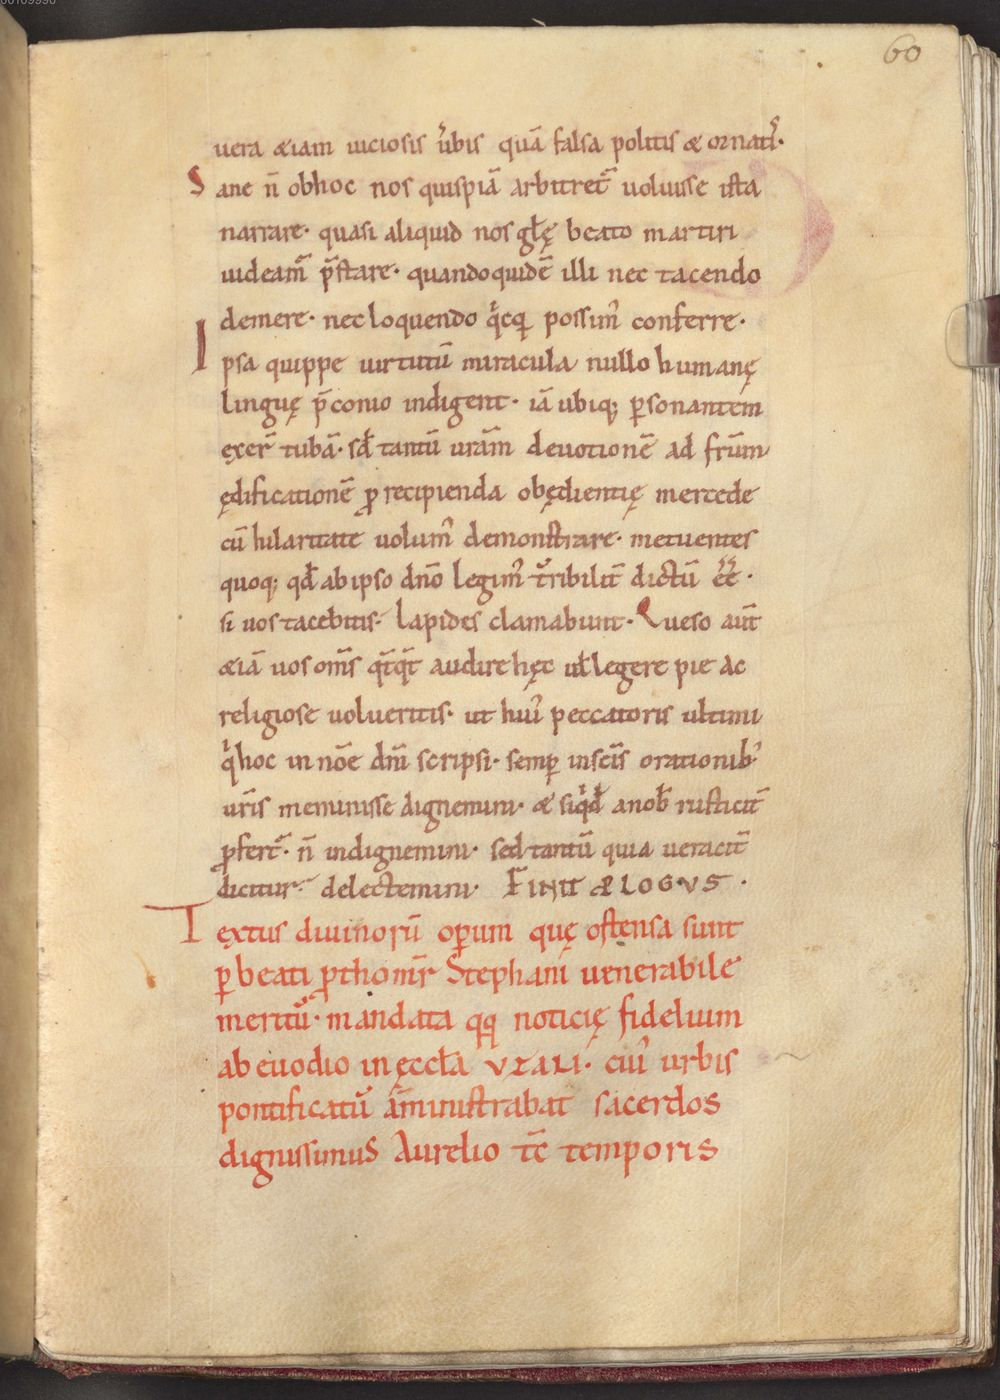 00109990
60
uera &iam uiciosis uˀbis quā falsa politis & ornatiˢ·
Sane n̄ obhoc nos quispiā arbitret᷑ uoluisse ista
narrare· quasi aliquid nos glꝉę beato martiri
uideam᷑ p̄stare· quandoquidē illi nec tacendo
demere· nec loquendo qͥcꝗ possimꝰ conferre·
Ipsa quippe uirtutū miracula nullo humanę
linguę p̄conio indigent· iā ubiq; ꝑsonantem
exer̄ tubā· sꝺ̄ tantū ur̄am deuotionē ad frūm
ędificationē ꝓ recipienda obędientię mercede
cū hilaritate uolumꝰ demonstrare· metuentes
quoq; qđ ab ipso dn̄o legimꝰ t̄ribilit̄ dictū ēē·
si uos tacebitis· lapides clamabunt· Queso aut̄
&iā uos om̄s qt̄qt̄ audire hęc uꝉ legere pie ac
religiose uolueritis· ut huiꝰ peccatoris ultimi
qͥ hoc in nōe dn̄i scripsi· semꝑ in sc̄is orationibꝰ
ur̄is meminisse dignemini· & siqͥđ a nob̄ rusticit̄
ꝓfert᷑· n̄ indignemini· sed tantū quia ueracit̄
dicitur· delectemini· FINIT PLOGVS·
Textus diuinorū oꝑum quę ostensa sunt
ꝑ beati ꝓthom̄r Stephani uenerabile
meritū· mandata qꝗ noticię fidelium
ab euodio in ęccꝉa VZALI· cuiꝰ urbis
pontificatū am̄inistrabat sacerdos
dignissimus Aurelio tc̄ temporis